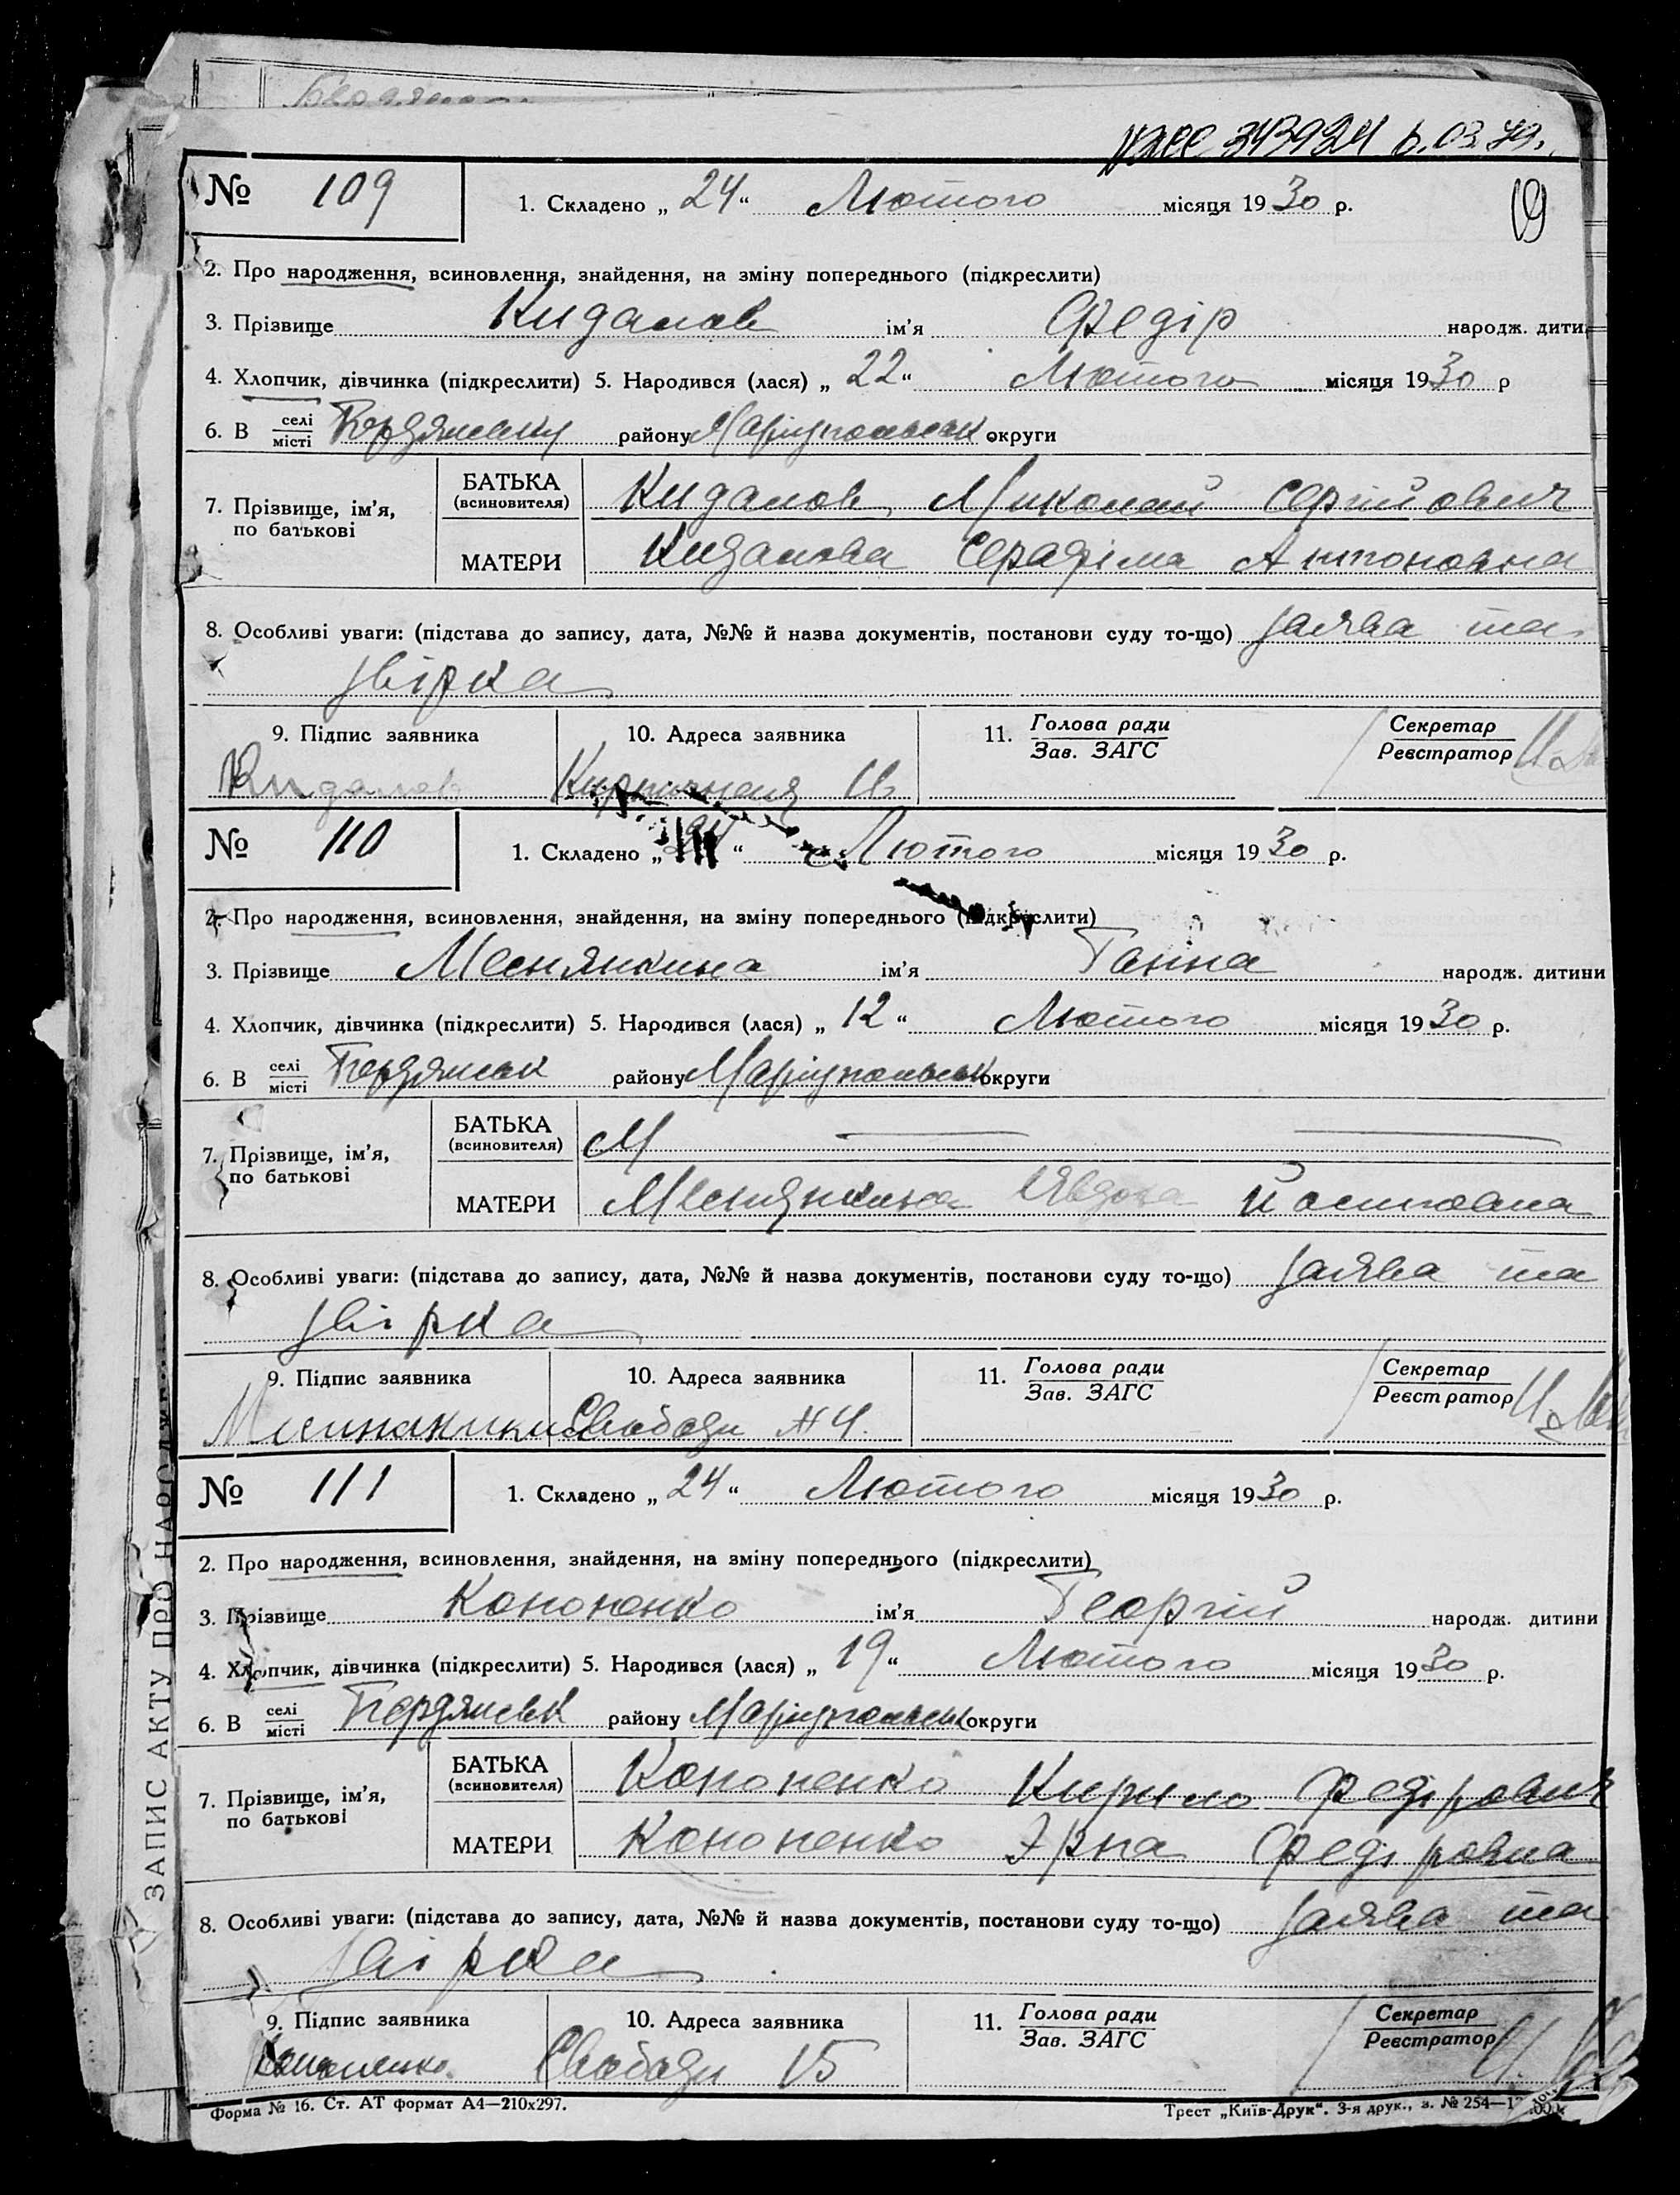 313924 6.03.79.
19
№ 109 1. Складено „ 24 “ Лютого місяця 1930 р.
2. Про народження, всиновлення, знайдення, на зміну попереднього (підкреслити)
3. Прізвище Кидалов ім'я Федір народж. дити
4. Хлопчик, дівчинка (підкреслити) 5. Народився (лася) „ 22 “ Лютого місяця 1930 р
6. В селі/місті Бердянську району Маріупольськ округи
7. Прізвище, ім'я, по батькові
БАТЬКА (всиновителя) Кидалов Миколай Сергійович
МАТЕРИ Кидалова Серафіма Антоновна
8. Особливі уваги: (підстава до запису, дата, №№ й назва документів, постанови суду то-що) заява та
звірка
9. Підпис заявника 10. Адреса заявника 11. Голова ради/Зав. ЗАГС Секретар/Реєстратор
Кидалов
№ 110 1. Складено „ 24 “ Лютого місяця 1930 р.
2. Про народження, всиновлення, знайдення, на зміну попереднього (підкреслити)
3. Прізвище Меснянкина ім'я Ганна народж. дитини
4. Хлопчик, дівчинка (підкреслити) 5. Народився (лася) „ 12 “ Лютого місяця 1930 р.
6. В селі/місті Бердянськ району Маріупольськ округи
7. Прізвище, ім'я, по батькові
БАТЬКА (всиновителя) М — —
МАТЕРИ Меснянкина Явдоха Йосиповна
8. Особливі уваги: (підстава до запису, дата, №№ й назва документів, постанови суду то-що) заява та
звірка
9. Підпис заявника 10. Адреса заявника 11. Голова ради/Зав. ЗАГС Секретар/Реєстратор
Свободи №4.
№ 111 1. Складено „ 24 “ Лютого місяця 1930 р.
2. Про народження, всиновлення, знайдення, на зміну попереднього (підкреслити)
3. Прізвище Кононенко ім'я Георгій народж. дитини
4. Хлопчик, дівчинка (підкреслити) 5. Народився (лася) „ 19 “ Лютого місяця 1930 р.
6. В селі/місті Бердянськ району Маріупольськ округи
7. Прізвище, ім'я, по батькові
БАТЬКА (всиновителя) Кононенко Кирило Федірович
МАТЕРИ Кононенко Эрна Федіровна
8. Особливі уваги: (підстава до запису, дата, №№ й назва документів, постанови суду то-що) заява та
звірка
9. Підпис заявника 10. Адреса заявника 11. Голова ради/Зав. ЗАГС Секретар/Реєстратор
Кононенко Свободи 15
Форма № 16. Ст. АТ формат А4—210х297. Трест „Київ-Друк“. 3-я друк., з. № 254—
ЗАПИС АКТУ ПРО НАРОДЖ